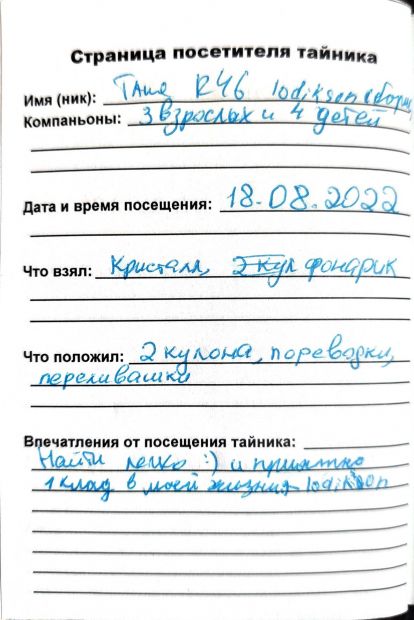 Страница посетителя тайника
Имя (ник): Таня R46 Iodikson (
Компаньоны: 3 взрослых и 4 детей
Дата и время посещения: 18.08.2022
Что взял: Кристалл, фонарик
Что положил: 2 кулона, пореводки,
переливашки
Впечатления от посещения тайника:
Найти легко :) и приятно
1 клад в моей жизни Iodikson